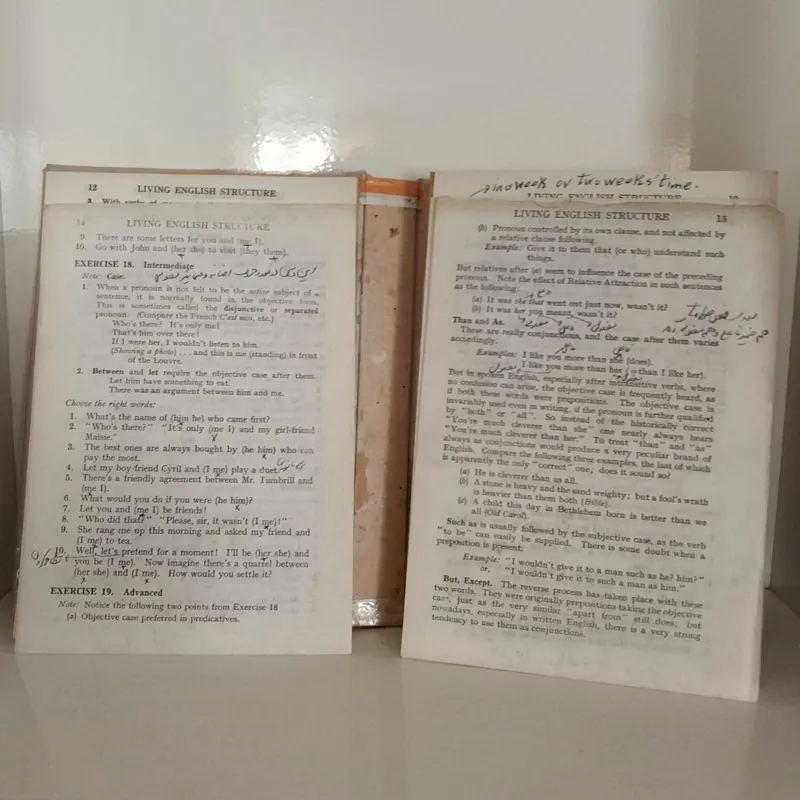 12 LIVING ENGLISH STRUCTURE
14 LIVING ENGLISH STRUCTURE
9. There are some letters for you and (me I).
10. Go with John and (her she) to visit (they them).
EXERCISE 18. Intermediate
Note: Case.
1. When a pronoun is not felt to be the active subject of a
sentence, it is normally found in the objective form.
This is sometimes called the disjunctive or separated
pronoun. (Compare the French C'est moi, etc.)
Who's there? It's only me!
That's him over there!
If I were her, I wouldn't listen to him.
(Showing a photo) . . . and this is me (standing) in front
of the Louvre.
2. Between and let require the objective case after them.
Let him have something to eat.
There was an argument between him and me.
Choose the right words:
1. What's the name of (him he) who came first?
2. "Who's there?" "It's only (me I) and my girl-friend
Maisie."
3. The best ones are always bought by (he him) who can
pay the most.
4. Let my boy-friend Cyril and (I me) play a duet.
5. There's a friendly agreement between Mr. Tumbrill and
(me I).
6. What would you do if you were (he him)?
7. Let you and (me I) be friends!
8. "Who did that?" "Please, sir, it wasn't (I me)!"
9. She rang me up this morning and asked my friend and
(I me) to tea.
10. Well, let's pretend for a moment! I'll be (her she) and
you be (I me). Now imagine there's a quarrel between
(her she) and (I me). How would you settle it?
EXERCISE 19. Advanced
Note: Notice the following two points from Exercise 18
(a) Objective case preferred in predicatives.
week or two weeks' time.
LIVING ENGLISH STRUCTURE
LIVING ENGLISH STRUCTURE 15
(b) Pronoun controlled by its own clause, and not affected by
a relative clause following.
Example: Give it to them that (or who) understand such
things.
But relatives after (a) seem to influence the case of the preceding
pronoun. Note the effect of Relative Attraction in such sentences
as the following:
(a) It was she that went out just now, wasn't it?
(b) It was her you meant, wasn't it?
Than and As.
These are really conjunctions, and the case after them varies
accordingly.
Examples: I like you more than she (does).
I like you more than her (=than I like her).
But in spoken English, especially after intransitive verbs, where
no confusion can arise, the objective case is frequently heard, as
if both these words were prepositions. The objective case is
invariably used even in writing, if the pronoun is further qualified
by "both" or "all". So instead of the historically correct
"You're much cleverer than she" one nearly always hears
"You're much cleverer than her." To treat "than" and "as"
always as conjunctions would produce a very peculiar brand of
English. Compare the following three examples, the last of which
is apparently the only "correct" one; does it sound so?
(a) He is cleverer than us all.
(b) A stone is heavy and the sand weighty; but a fool's wrath
is heavier than them both (Bible).
(c) A child this day in Bethlehem born is better than we
all (Old Carol).
Such as is usually followed by the subjective case, as the verb
"to be" can easily be supplied. There is some doubt when a
preposition is present.
Example: "I wouldn't give it to a man such as he? him?"
or, "I wouldn't give it to such a man as him."
But, Except. The reverse process has taken place with these
two words. They were originally prepositions taking the objective
case, just as the very similar "apart from" still does; but
nowadays, especially in written English, there is a very strong
tendency to use them as conjunctions.